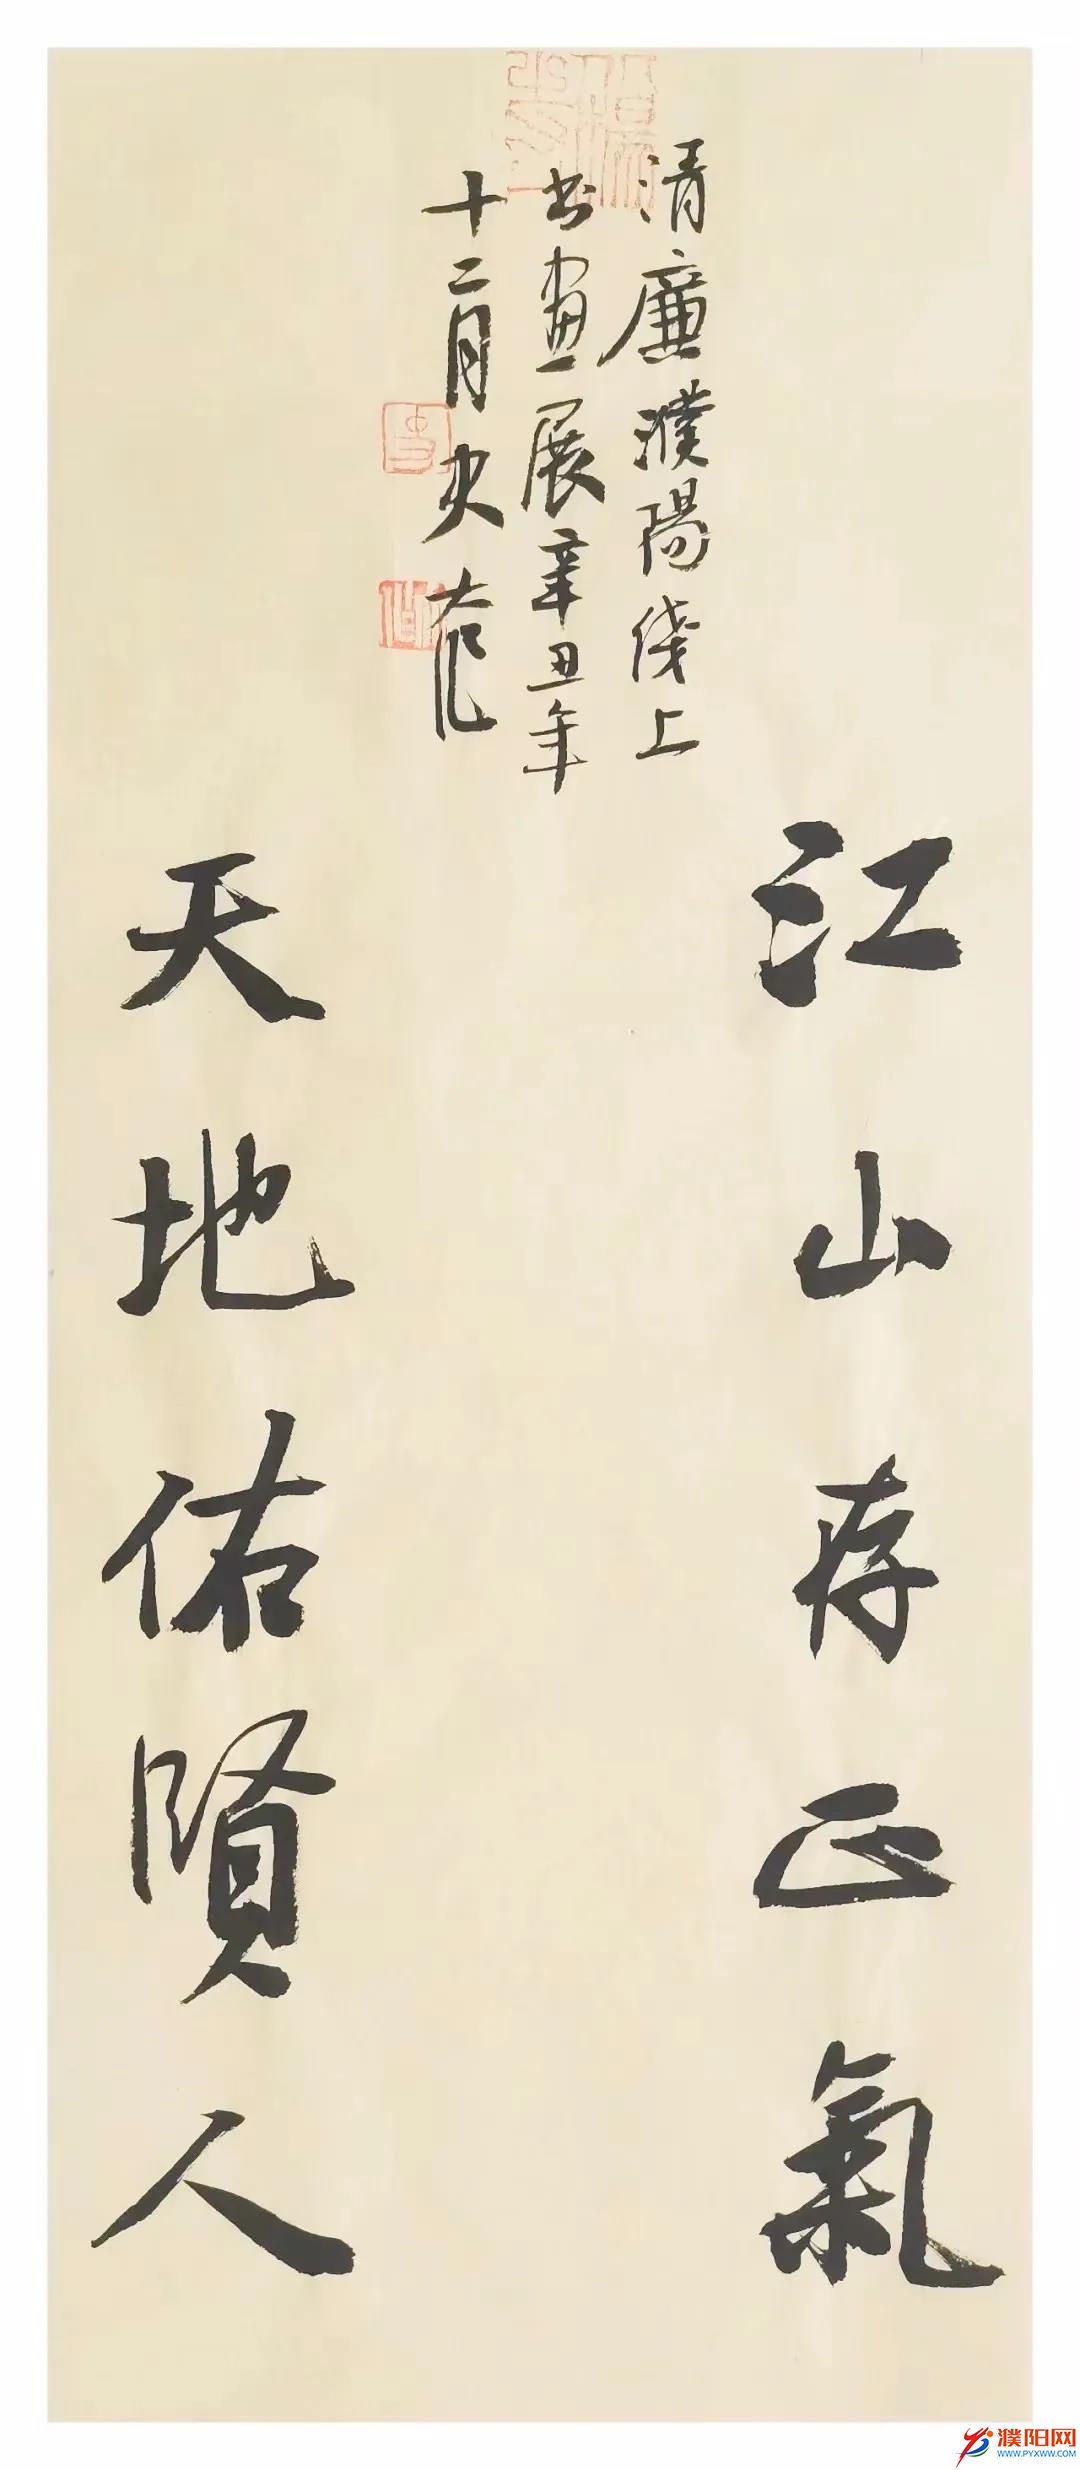 江山存正氣
天地佑賢人
清廉濮陽线上
书畫展辛丑年
十二月史
濮阳网
WWW.PYXWW.COM